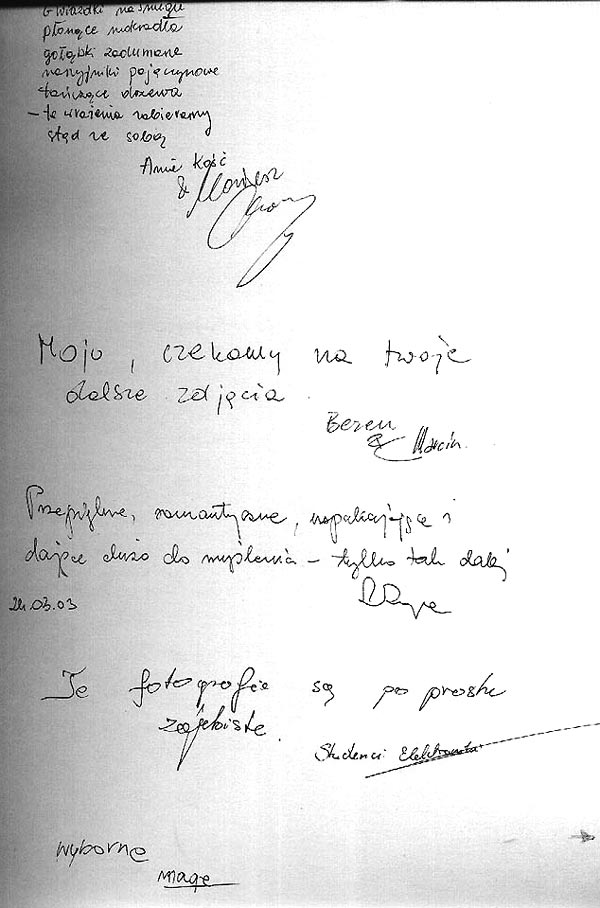 Gwiazdki na śniegu
płonące
gołąbki zadumane
naszyjniki pajęczynowe
tańczące drzewa
– te wrażenia zabieramy
stąd ze sobą
Ania Kość
&
Mojo, czekamy na twoje
dalsze zdjęcia
Beren
& Marcin
Przepiękne, romantyczne, uspakajające i
dające dużo do myślenia – tylko tak dalej
24.03.03
Te fotografie są po prostu
zajebiste.
Studenci
wyborne
mage